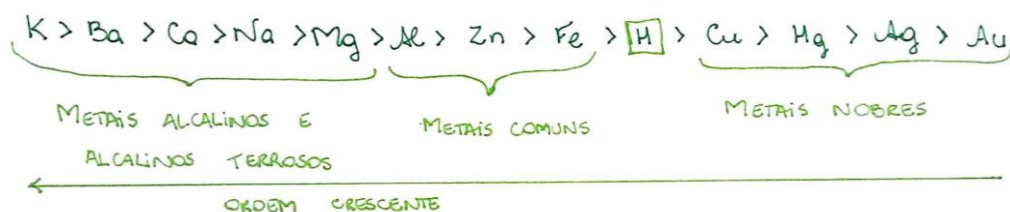 K > Ba > Ca > Na > Mg > Al > Zn > Fe > H > Cu > Hg > Ag > Au
METAIS ALCALINOS E
ALCALINOS TERROSOS
METAIS COMUNS
METAIS NOBRES
ORDEM CRESCENTE